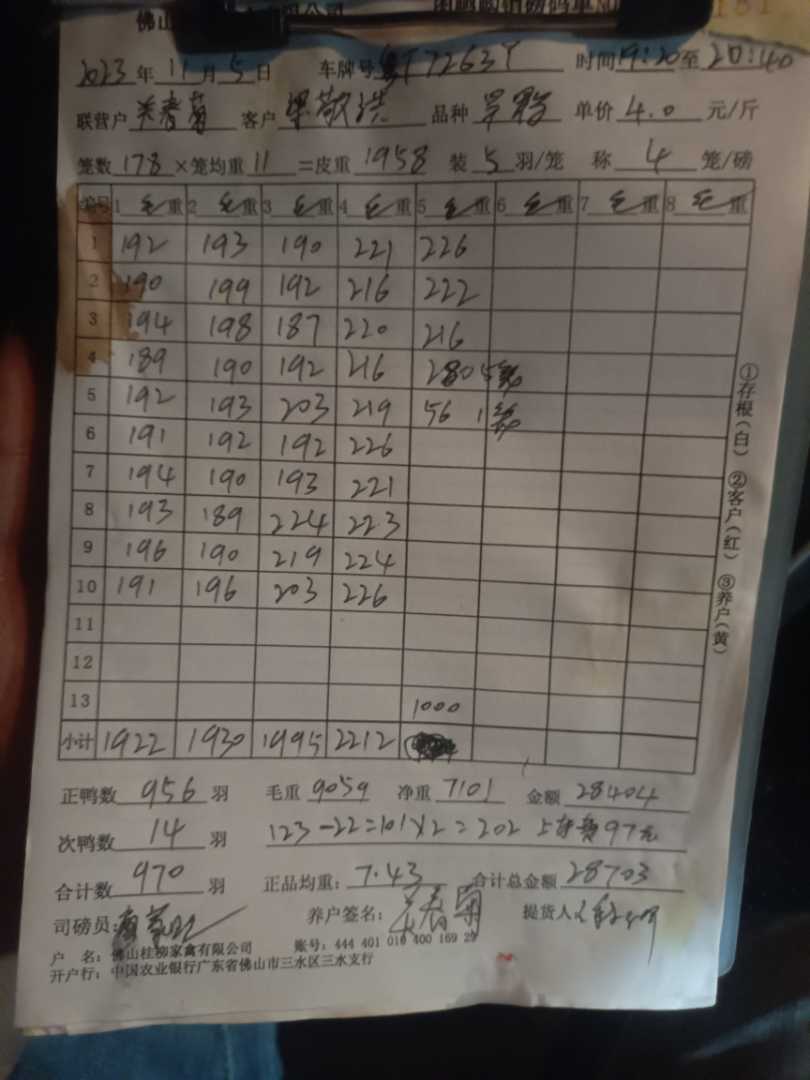 佛山
2023年11月5日 车牌号粤T7263Y 时间19:20至20:40
联营户 关春菊 客户 梁敬洪 品种 单价 4.0 元/斤
笼数 178 ×笼均重 11 =皮重 1958 装 5 羽/笼 称 4 笼/磅
编号 1 毛重 2 毛重 3 毛重 4 毛重 5 毛重 6 毛重 7 毛重 8 毛重
1 192 193 190 221 226
2 190 199 192 216 222
3 194 198 187 220 216
4 189 190 192 216 280 5笼
5 192 193 203 219 56 1笼
6 191 192 192 226
7 194 190 193 221
8 193 189 224 223
9 196 190 219 224
10 191 196 203 226
11
12
13 1000
小计 1922 1930 1995 2212
①存根(白) ②客户(红) ③养户(黄)
正鸭数 956 羽 毛重 9059 净重 7101 金额 28404
次鸭数 14 羽 123-22=101×2=202 上车费97元
合计数 970 羽 正品均重: 7.43 合计总金额 28703
司磅员: 养户签名: 关春菊 提货人
户 名: 佛山桂柳家禽有限公司 账号: 444 401 010 400 169 29
开户行: 中国农业银行广东省佛山市三水区三水支行